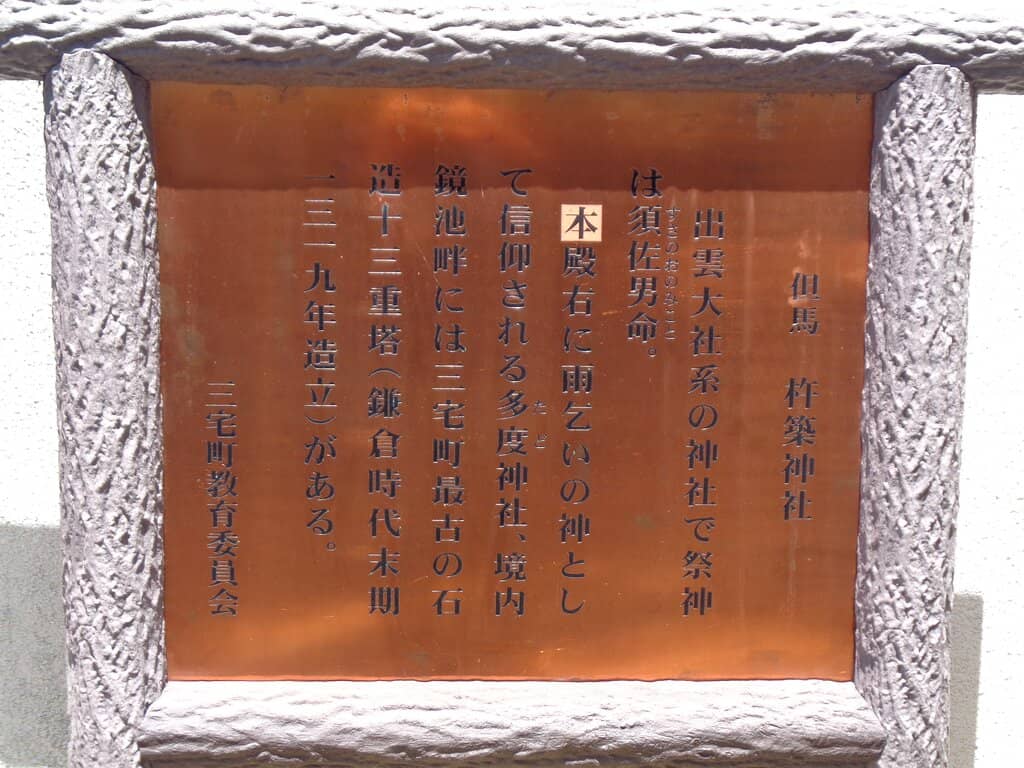 但馬 杵築神社
出雲大社系の神社で祭神
は須佐男命。
すさのおのみこと
本殿右に雨乞いの神とし
て信仰される多度神社、境内
たど
鏡池畔には三宅町最古の石
造十三重塔(鎌倉時代末期
一三一九年造立)がある。
三宅町教育委員会